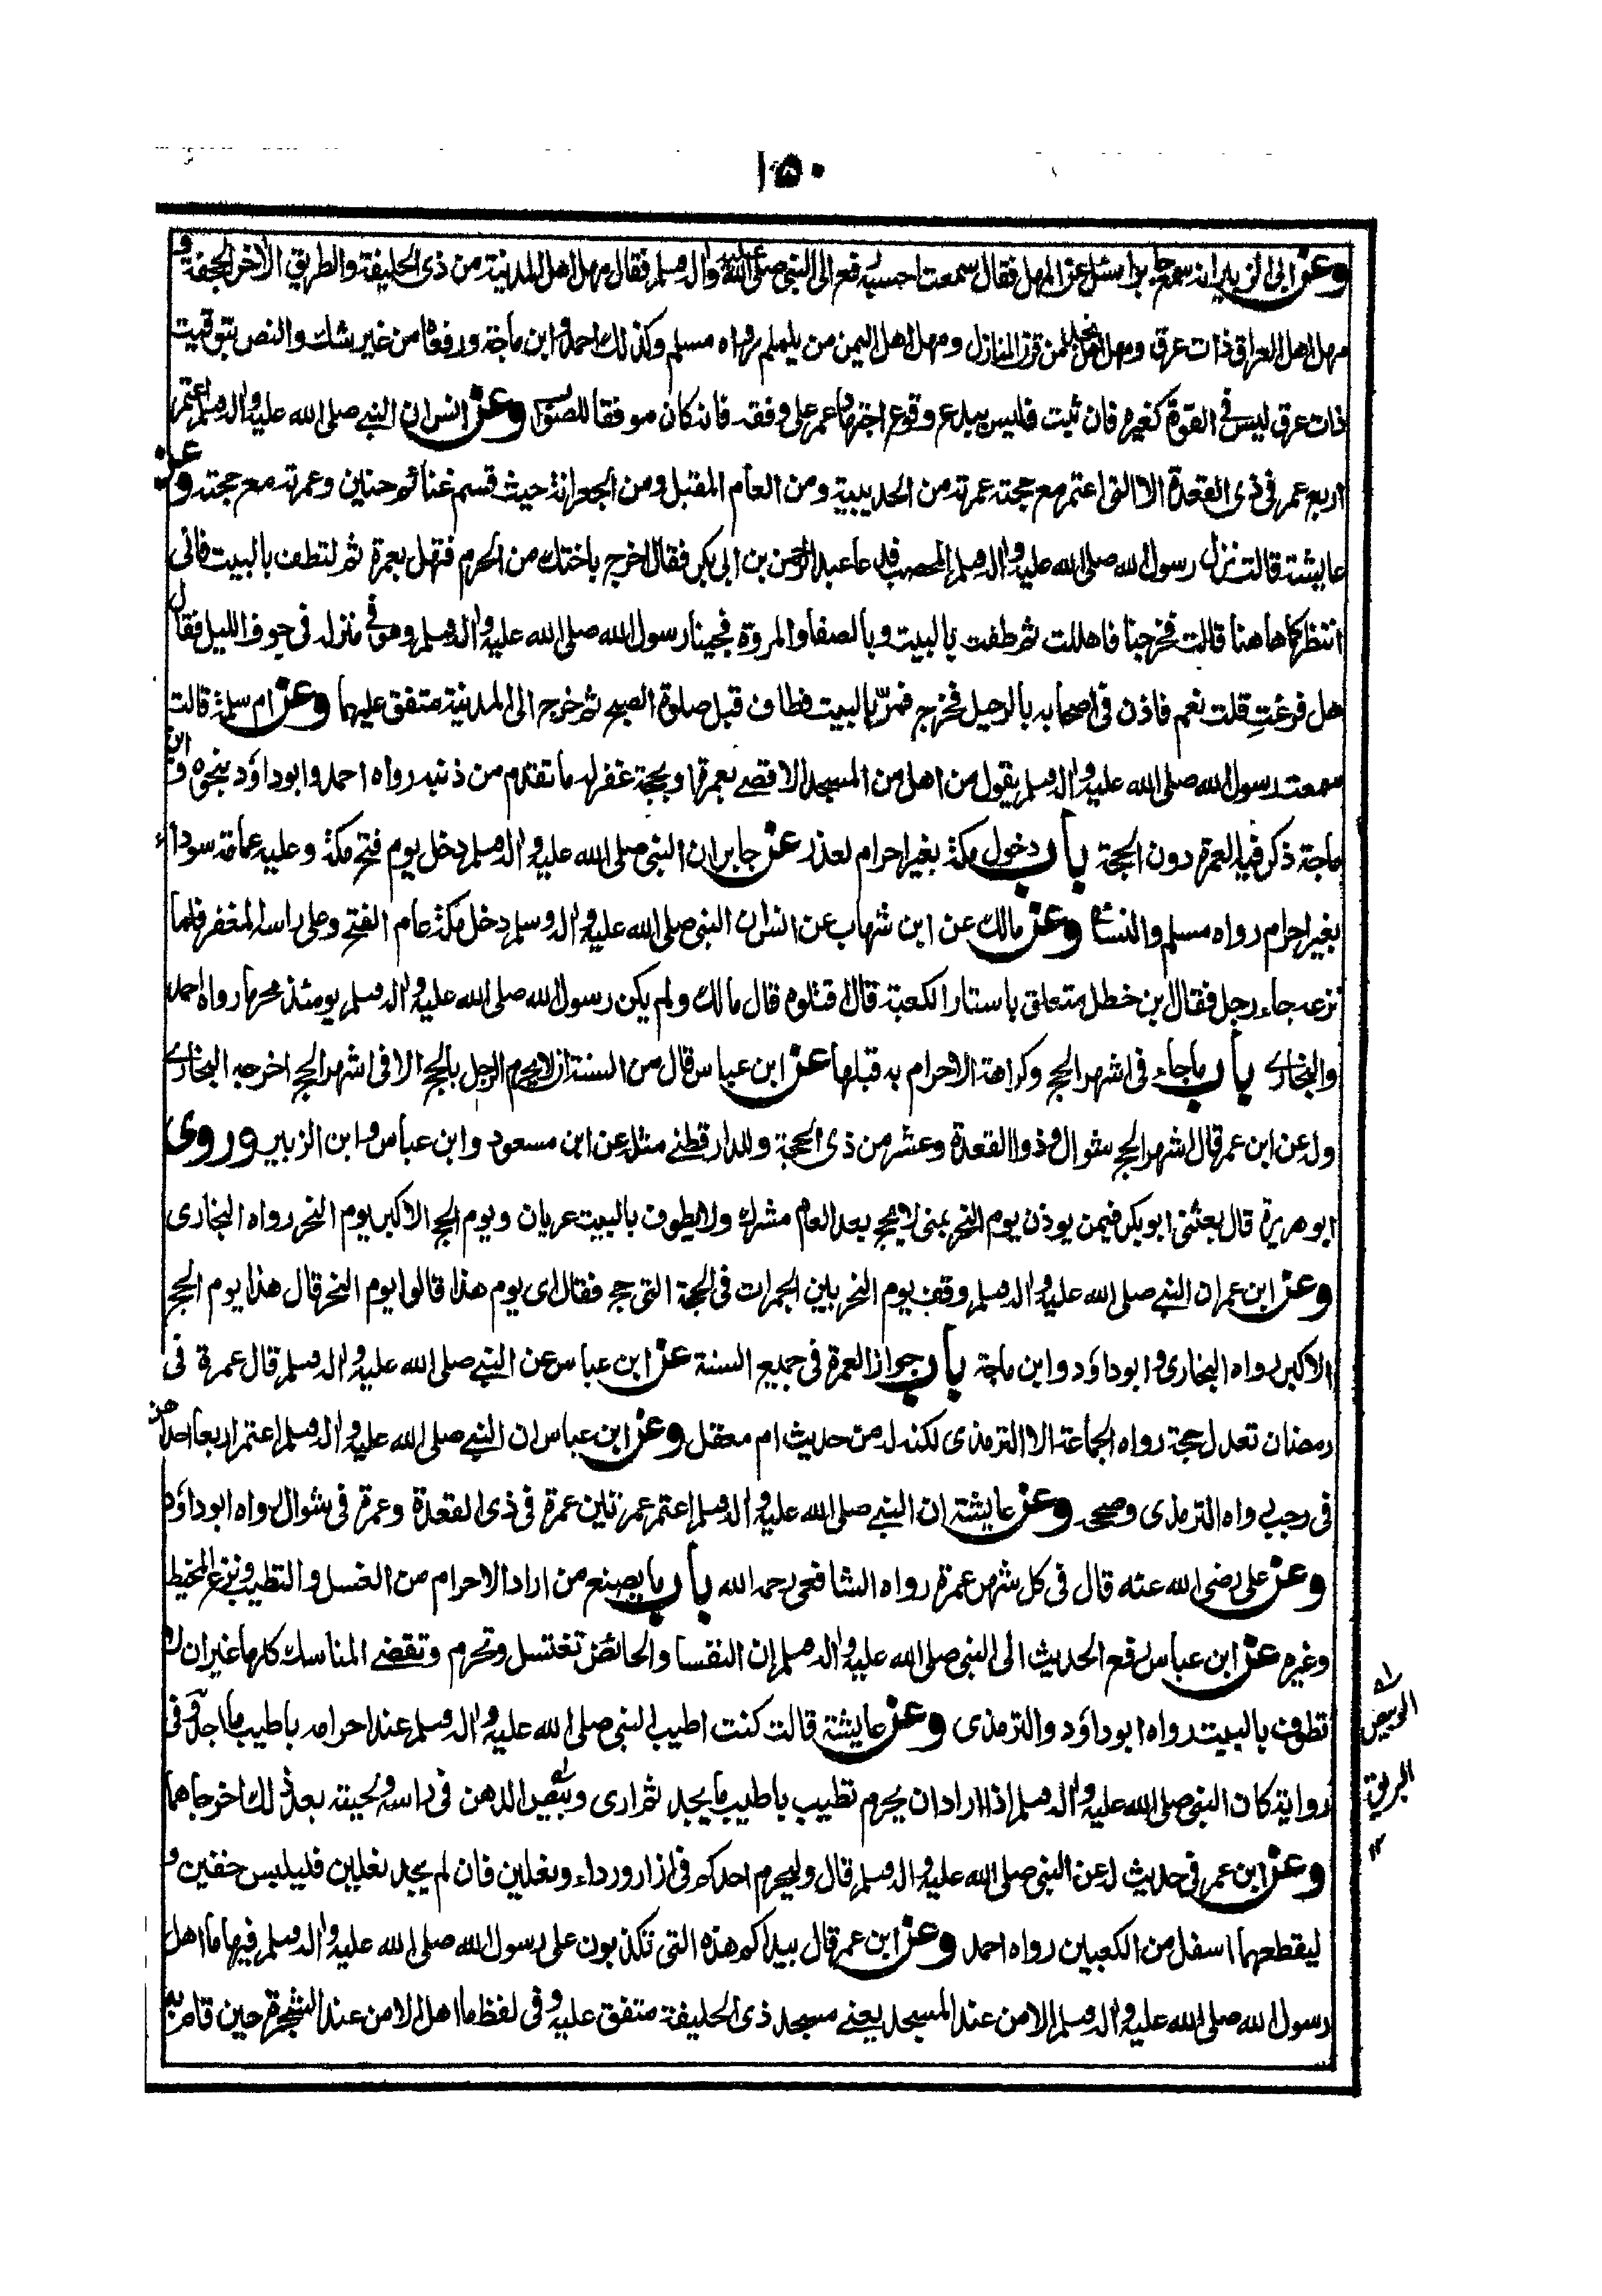 ١٥٠
وعن ابى الزبير انه سمع جابرا سئل عن المهل فقال سمعت احسبه رفع الى النبى صلى الله عليه واله وسلم فقال مهل اهل المدينة من ذى الحليفة والطريق الاخر الجحفة و
مهل اهل العراق ذات عرق ومهل اهل نجد من قرن المنازل ومهل اهل اليمن من يلملم رواه مسلم وكذلك احمد وابن ماجة ورفعاه من غير شك والنص بتوقيت
ذات عرق ليس فى القوة كغيره فان ثبت فليس ببدع وقوع اجتهاد عمر على وفقه فانه كان موفقا للصواب وعن انس ان النبي صلى الله عليه واله وسلم اعتمر
اربع عمر فى ذى القعدة الا التى اعتمر مع حجته عمرته من الحديبية ومن العام المقبل ومن الجعرانة حيث قسم غنائم حنين وعمرته مع حجته وعن
عايشة قالت نزل رسول الله صلى الله عليه واله وسلم المحصب فدعا عبد الرحمن بن ابى بكر فقال اخرج باختك من الحرم فتهل بعمرة ثم لتطف بالبيت فانى
انتظركما هاهنا قالت فخرجنا فاهللت ثم طفت بالبيت وبالصفا والمروة فجينا رسول الله صلى الله عليه واله وسلم وهو فى منزله فى جوف الليل فقال
هل فرغتِ قلت نعم فاذن فى اصحابه بالرحيل فخرج فمرّ بالبيت فطاف قبل صلوة الصبح ثم خرج الى المدينة متفق عليهما وعن ام سلمة قالت
سمعت رسول الله صلى الله عليه واله وسلم يقول من اهل من المسجد الاقصے بعمرة او بحجة غفر له ما تقدم من ذنبه رواه احمد وابو داوَد بنحوه وابن
ماجة ذكر فيه العمرة دون الحجة باب دخول مكة بغير احرام لعذر عن جابر ان النبى صلى الله عليه واله وسلم دخل يوم فتح مكة وعليه عمامة سوداء
بغير احرام رواه مسلم والنسائے وعن مالك عن ابن شهاب عن انس ان النبى صلى الله عليه واله وسلم دخل مكة عام الفتح وعلى راسه المغفر فلما
نزعه جاء رجل فقال ابن خطل متعلق باستار الكعبة قال اقتلوه قال مالك ولم يكن رسول الله صلى الله عليه واله وسلم يومئذ محرما رواه احمد
والبخارے باب ما جاء فى اشهر الحج وكراهة الاحرام به قبلها عن ابن عباس قال من السنة ان لا يحرم الرجل بالحج الا فى اشهر الحج اخرجه البخارے
وله عن ابن عمر قال اشهر الحج شوال وذو القعدة وعشر من ذى الحجة وللدار قطنے مثله عن ابن مسعود وابن عباس وابن الزبير وروى
ابو هريرة قال بعثنى ابو بكر فيمن يوذن يوم النحر بمنى لا يحج بعد العام مشرك ولا يطوف بالبيت عريان ويوم الحج الاكبر يوم النحر رواه البخارى
وعن ابن عمر ان النبي صلى الله عليه واله وسلم وقف يوم النحر بين الجمرات فى الحجة التى حج فقال اى يوم هذا قالوا يوم النحر قال هذا يوم الحج
الاكبر رواه البخارى وابو داوَد وابن ماجة باب جواز العمرة فى جميع السنة عن ابن عباس عن النبي صلى الله عليه واله وسلم قال عمرة فى
رمضان تعدل حجة رواه الجماعة الا الترمذى لكنه له من حديث ام معقل وعن ابن عباس ان النبي صلى الله عليه واله وسلم اعتمر اربعا احداهن
فى رجب رواه الترمذى وصححه وعن عايشة ان النبي صلى الله عليه واله وسلم اعتمر عمرتين عمرة فى ذى القعدة وعمرة فى شوال رواه ابو داوَد
وعن على رضى الله عنه قال فى كل شهر عمرة رواه الشافعى رحمه الله باب ما يصنع من اراد الاحرام من الغسل والتطيب ونزع المخيط
وغيره عن ابن عباس رفع الحديث الى النبى صلى الله عليه واله وسلم ان النفسا والحائض تغتسل وتحرم وتقضے المناسك كلها غير ان لا
تطوف بالبيت رواه ابو داوَد والترمذى وعن عايشة قالت كنت اطيب النبى صلى الله عليه واله وسلم عند احرامه باطيب ما اجد وفى
رواية كان النبى صلى الله عليه واله وسلم اذا اراد ان يحرم تطيب باطيب ما يجد ثم ارى وبيص الدهن فى راسه ولحيته بعد ذلك اخرجاهما
وعن ابن عمر فى حديث له عن النبى صلى الله عليه واله وسلم قال وليحرم احدكم فى ازار ورداء ونعلين فان لم يجد نعلين فليلبس خفين و
ليقطعهما اسفل من الكعبين رواه احمد وعن ابن عمر قال بيداكم هذه التى تكذبون على رسول الله صلى الله عليه واله وسلم فيها ما اهل
رسول الله صلى الله عليه واله وسلم الا من عند المسجد يعنے مسجد ذى الحليفة متفق عليه وفى لفظ ما اهل الا من عند الشجرة حين قام به
الوبيص
البريق
١٢